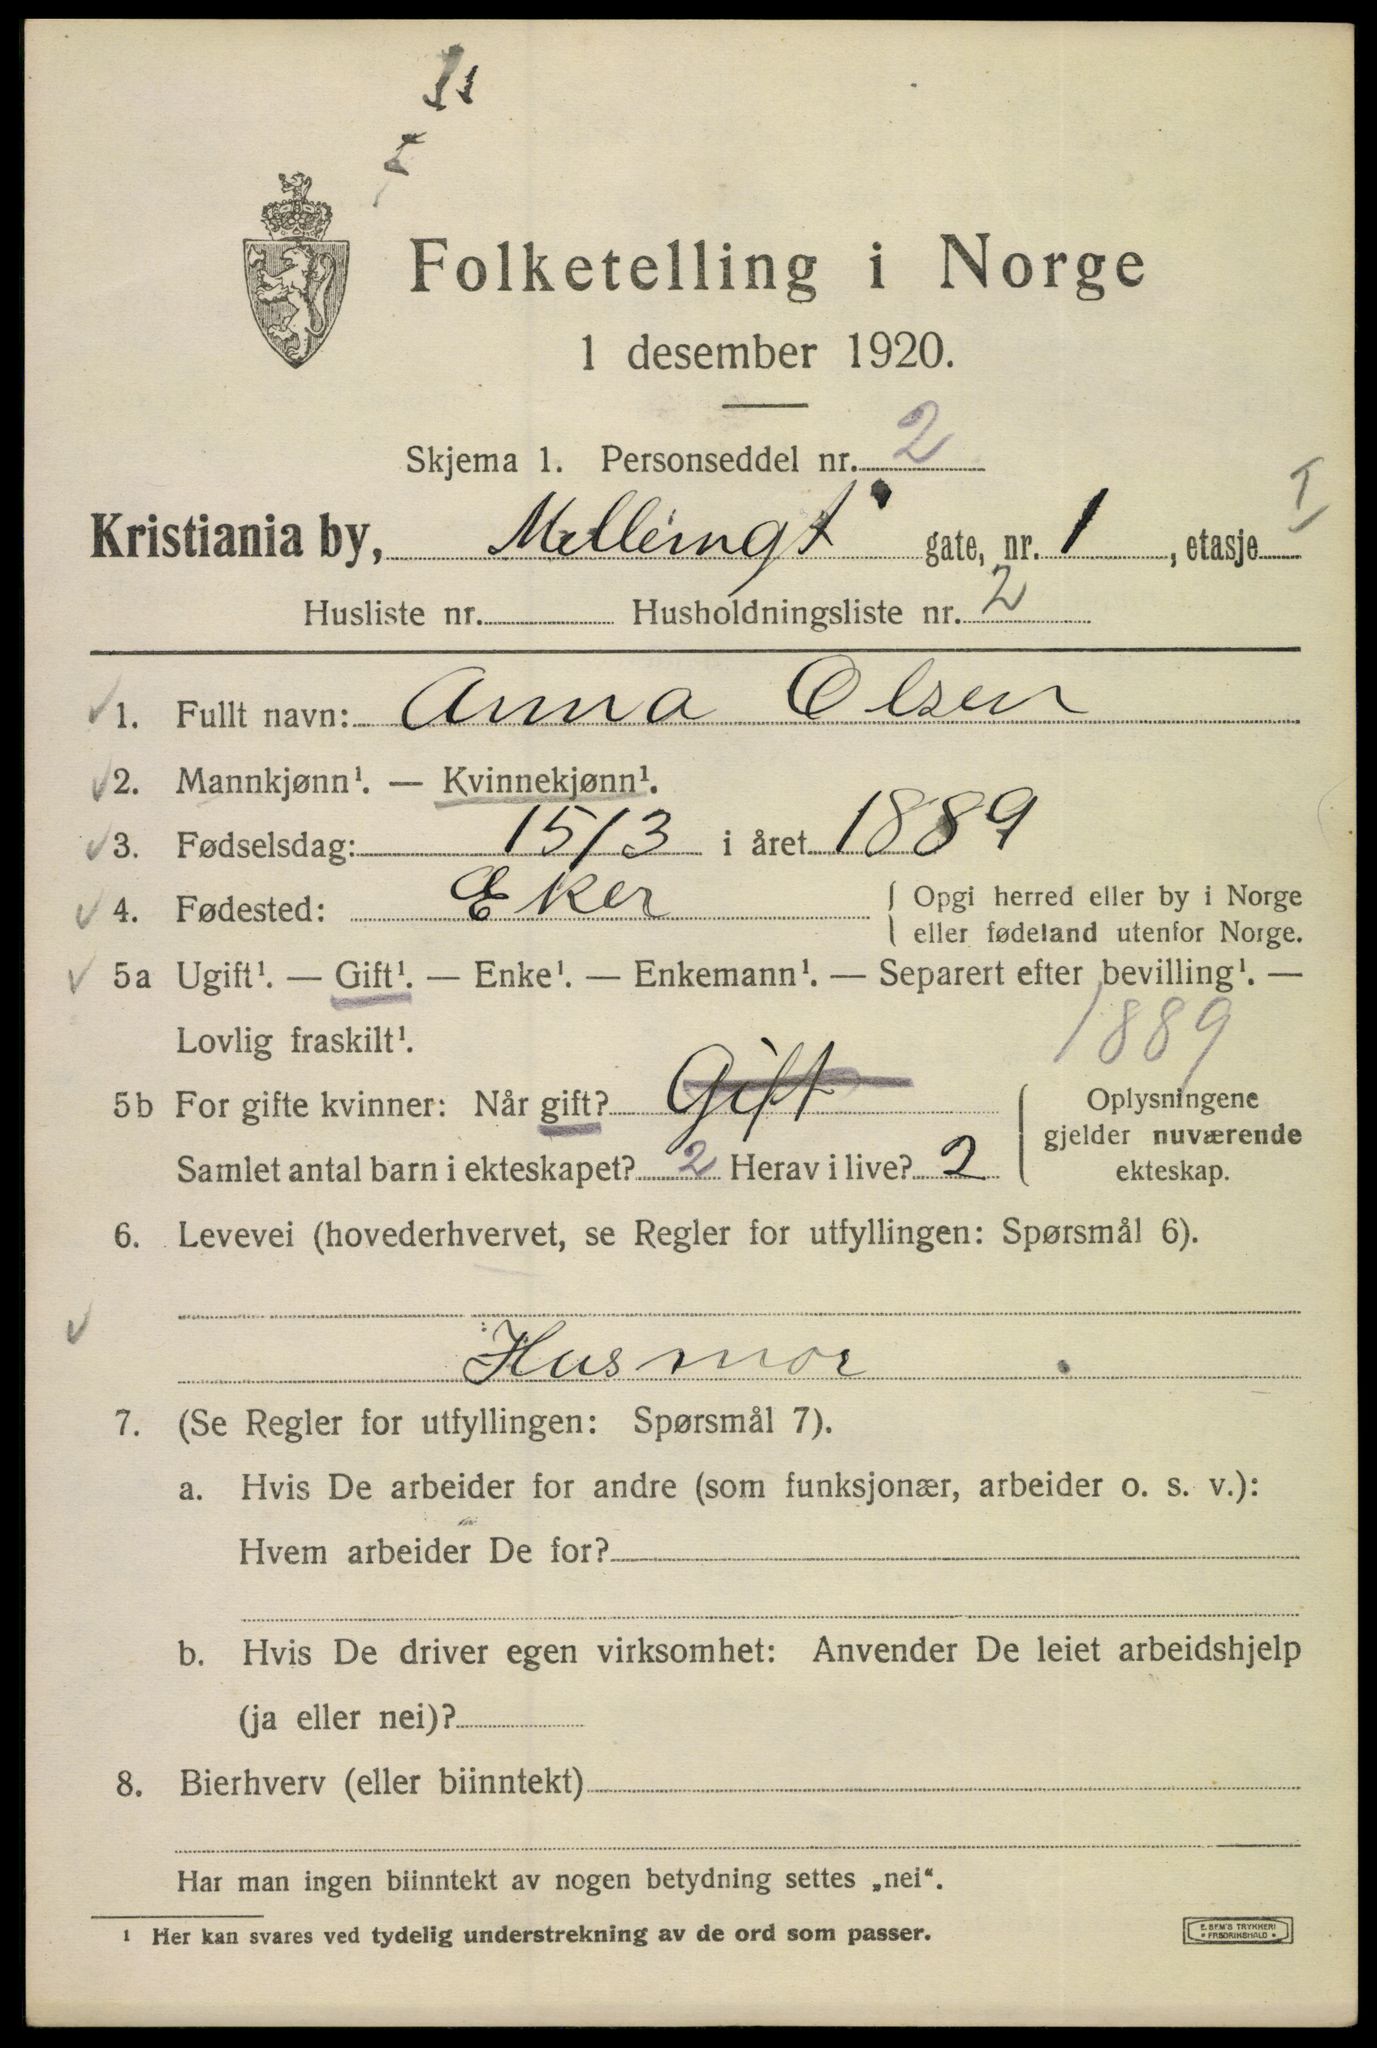 Folketelling i Norge
1 desember 1920.
Skjema 1. Personseddel nr. 2
Kristiania by, gate, nr. 1, etasje I
Husliste nr. Husholdningsliste nr. 2
1. Fullt navn: Anna Olsen
2. Mannkjønn¹. — Kvinnekjønn¹.
3. Fødselsdag: 15/3 i året 1889
4. Fødested: Eker { Opgi herred eller by i Norge
eller fødeland utenfor Norge.
5a Ugift¹. — Gift¹. — Enke¹. — Enkemann¹. — Separert efter bevilling¹. —
Lovlig fraskilt¹.
1889
5b For gifte kvinner: Når gift? Gift
Samlet antal barn i ekteskapet? 2 Herav i live? 2
Oplysningene
gjelder nuværende
ekteskap.
6. Levevei (hovederhvervet, se Regler for utfyllingen: Spørsmål 6).
Husmor
7. (Se Regler for utfyllingen: Spørsmål 7).
a. Hvis De arbeider for andre (som funksjonær, arbeider o. s. v.):
Hvem arbeider De for?
b. Hvis De driver egen virksomhet: Anvender De leiet arbeidshjelp
(ja eller nei)?
8. Bierhverv (eller biinntekt)
Har man ingen biinntekt av nogen betydning settes „nei“.
¹ Her kan svares ved tydelig understrekning av de ord som passer.
E. SEM'S TRYKKERI
FREDRIKSHALD